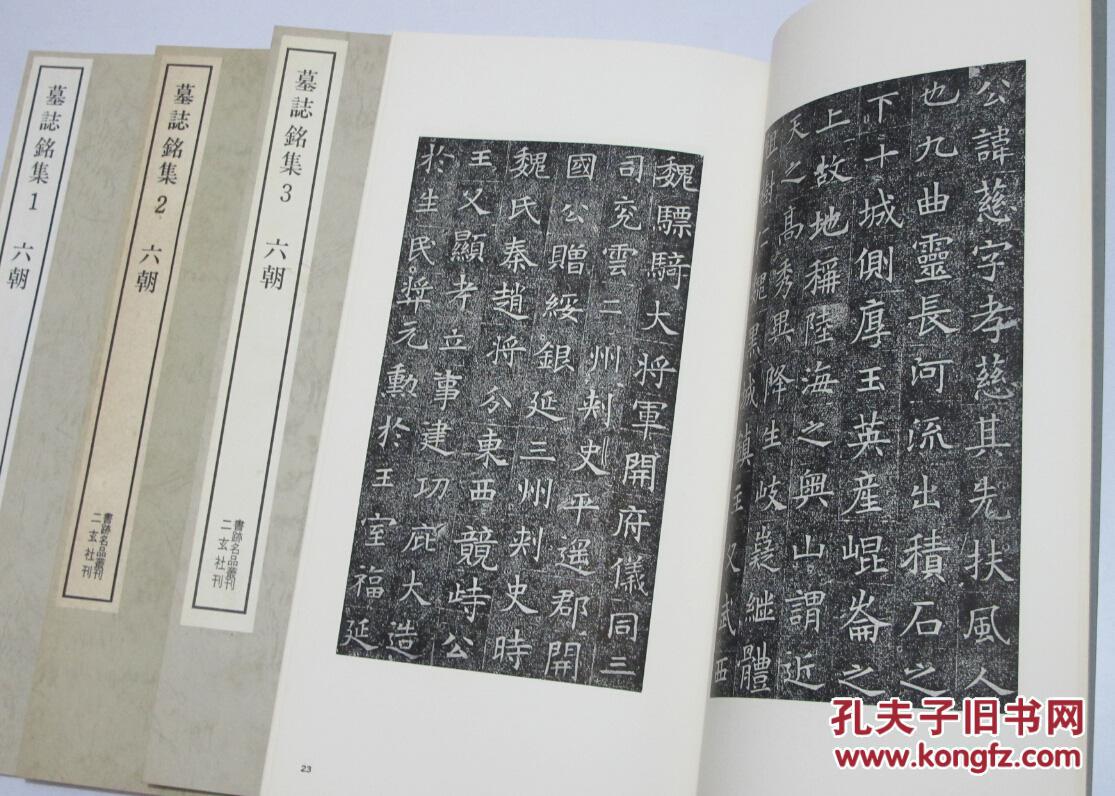 墓誌銘集 1 六朝
墓誌銘集 2 六朝
書跡名品叢刊
二玄社刊
墓誌銘集 3 六朝
書跡名品叢刊
二玄社刊
公諱慈字孝慈其先扶風人
也九曲靈長河流出積石之
下十城側厚玉英產崐崙之
上故地稱陸海之奧山謂近
天之高秀異降生岐嶷継體
又武西
魏驃騎大将軍開府儀同三
司兖雲二州刾史平遥郡開
國公贈綏銀延三州刾史時
魏氏秦趙将分東西競峙公
王父顯考立事建功庇大造
於生民奬元勲於王室福延
23
孔夫子旧书网
www.kongfz.com